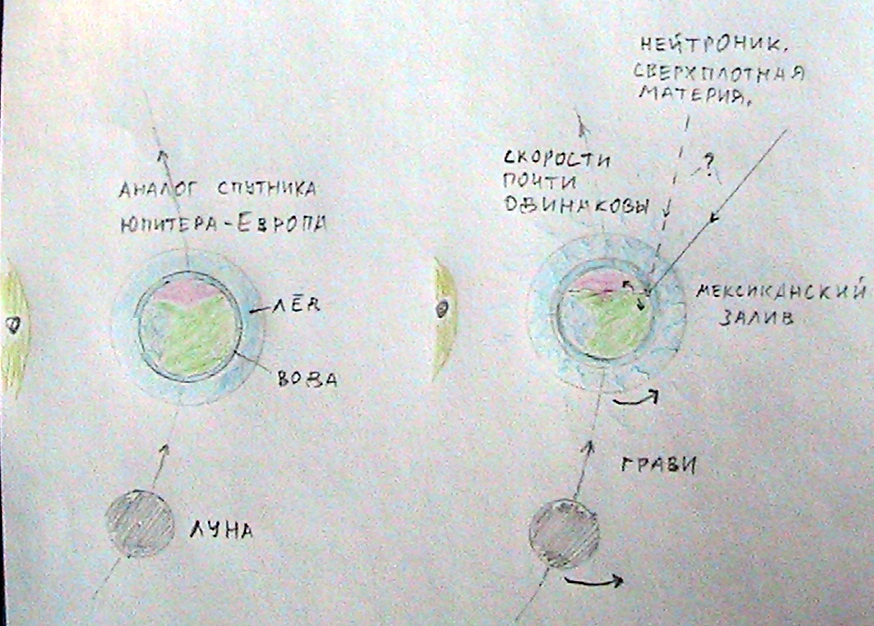 АНАЛОГ СПУТНИКА
ЮПИТЕРА-ЕВРОПА
ЛЁД
ВОДА
ЛУНА
НЕЙТРОНИК.
СВЕРХПЛОТНАЯ
МАТЕРИЯ.
СКОРОСТИ
ПОЧТИ
ОДИНАКОВЫ
?
МЕКСИКАНСКИЙ
ЗАЛИВ
ГРАВИ